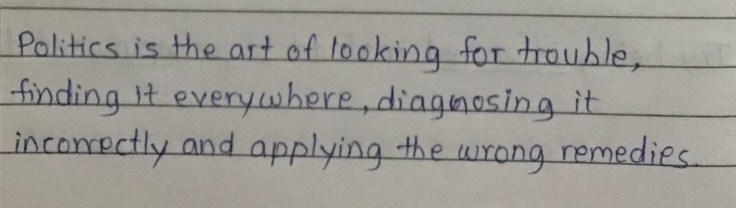 Politics is the art of looking for trouble,
finding it everywhere, diagnosing it
incorrectly and applying the wrong remedies.